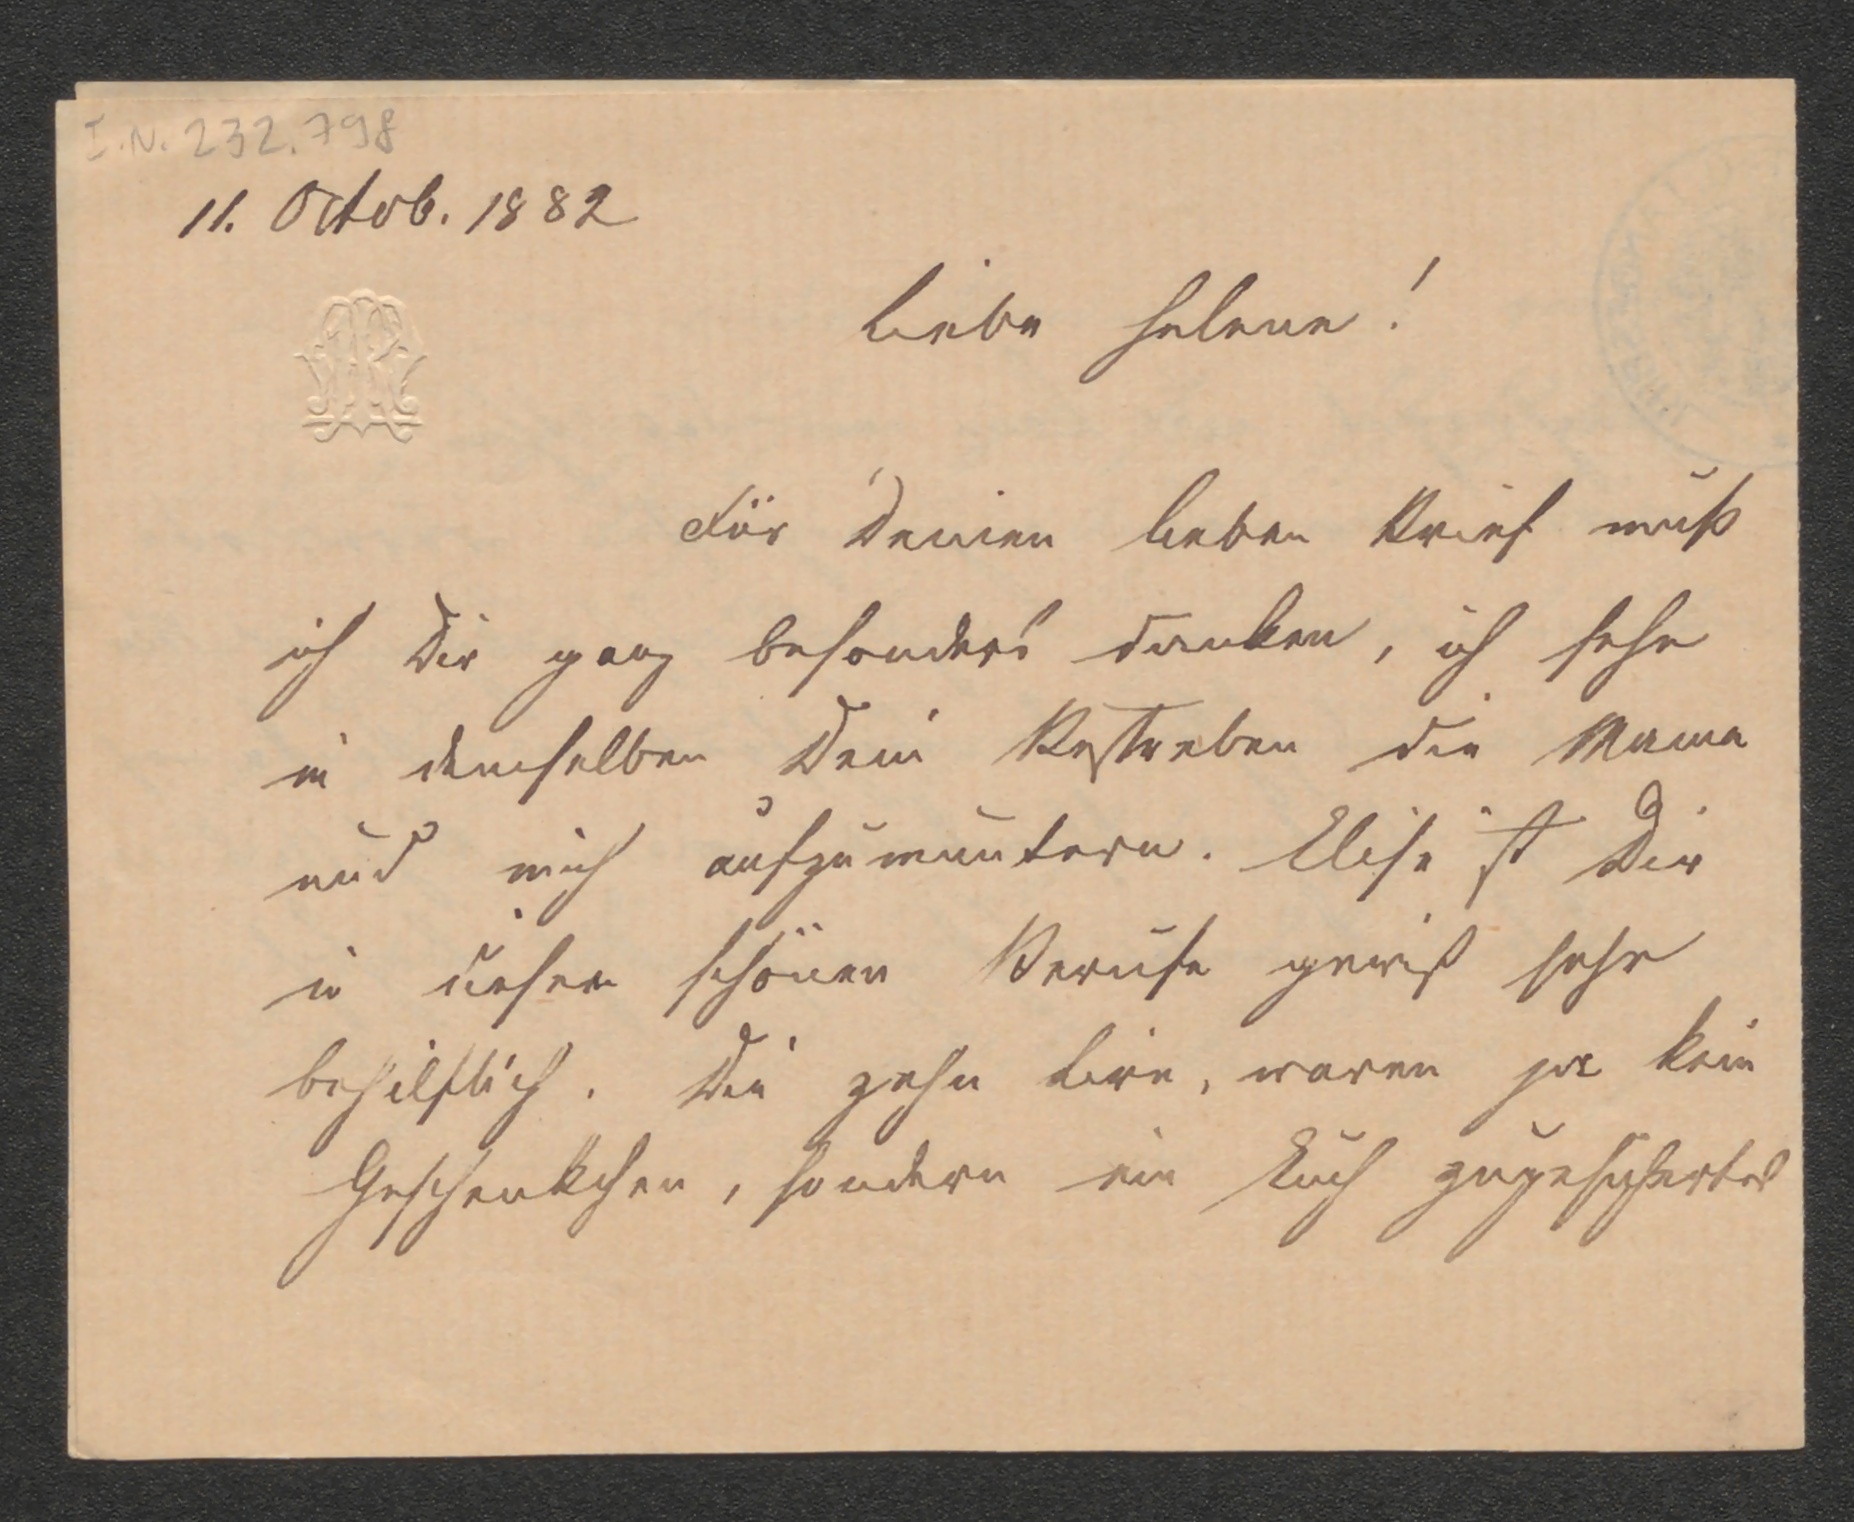 I.N. 232.798
11. Octob. 1882
Liebe Helene!
Für Deinen lieben Brief muß
ich Dir ganz besonders danken, ich sehe
in demselben Dein Bestreben die Mama
und mich aufzumuntern. Elise ist Dir
in diesem schönen Berufe gewiß sehr
behilflich. Die zehn Lire, waren ja kein
Geschenkchen, sondern ein Euch zugesichertes